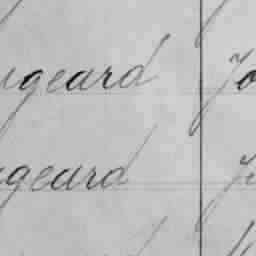 ugeard Jo
geard J